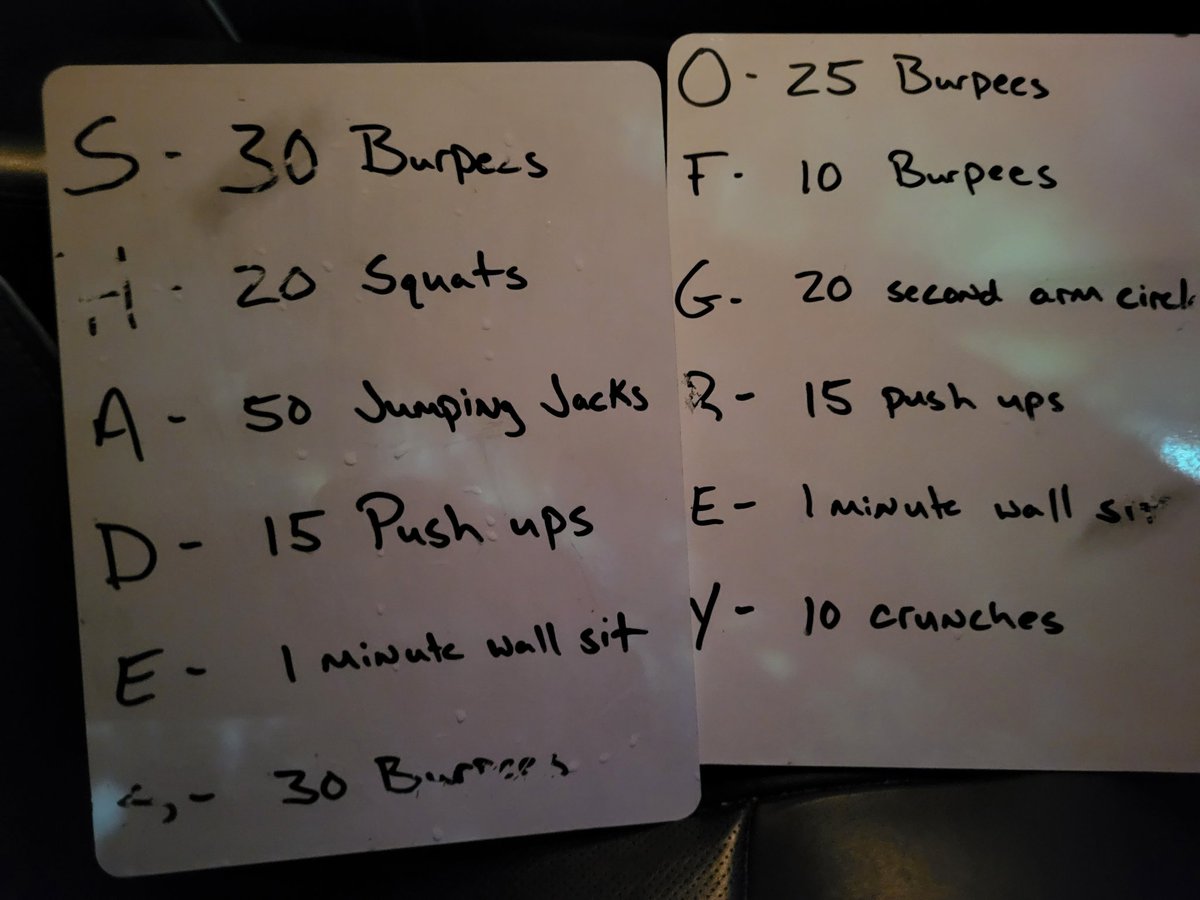 S - 30 Burpees
H - 20 Squats
A - 50 Jumping Jacks
D - 15 Push ups
E - 1 minute wall sit
- 30 Burpees
O - 25 Burpees
F - 10 Burpees
G - 20 second arm
R - 15 push ups
E - 1 minute wall sit
Y - 10 crunches